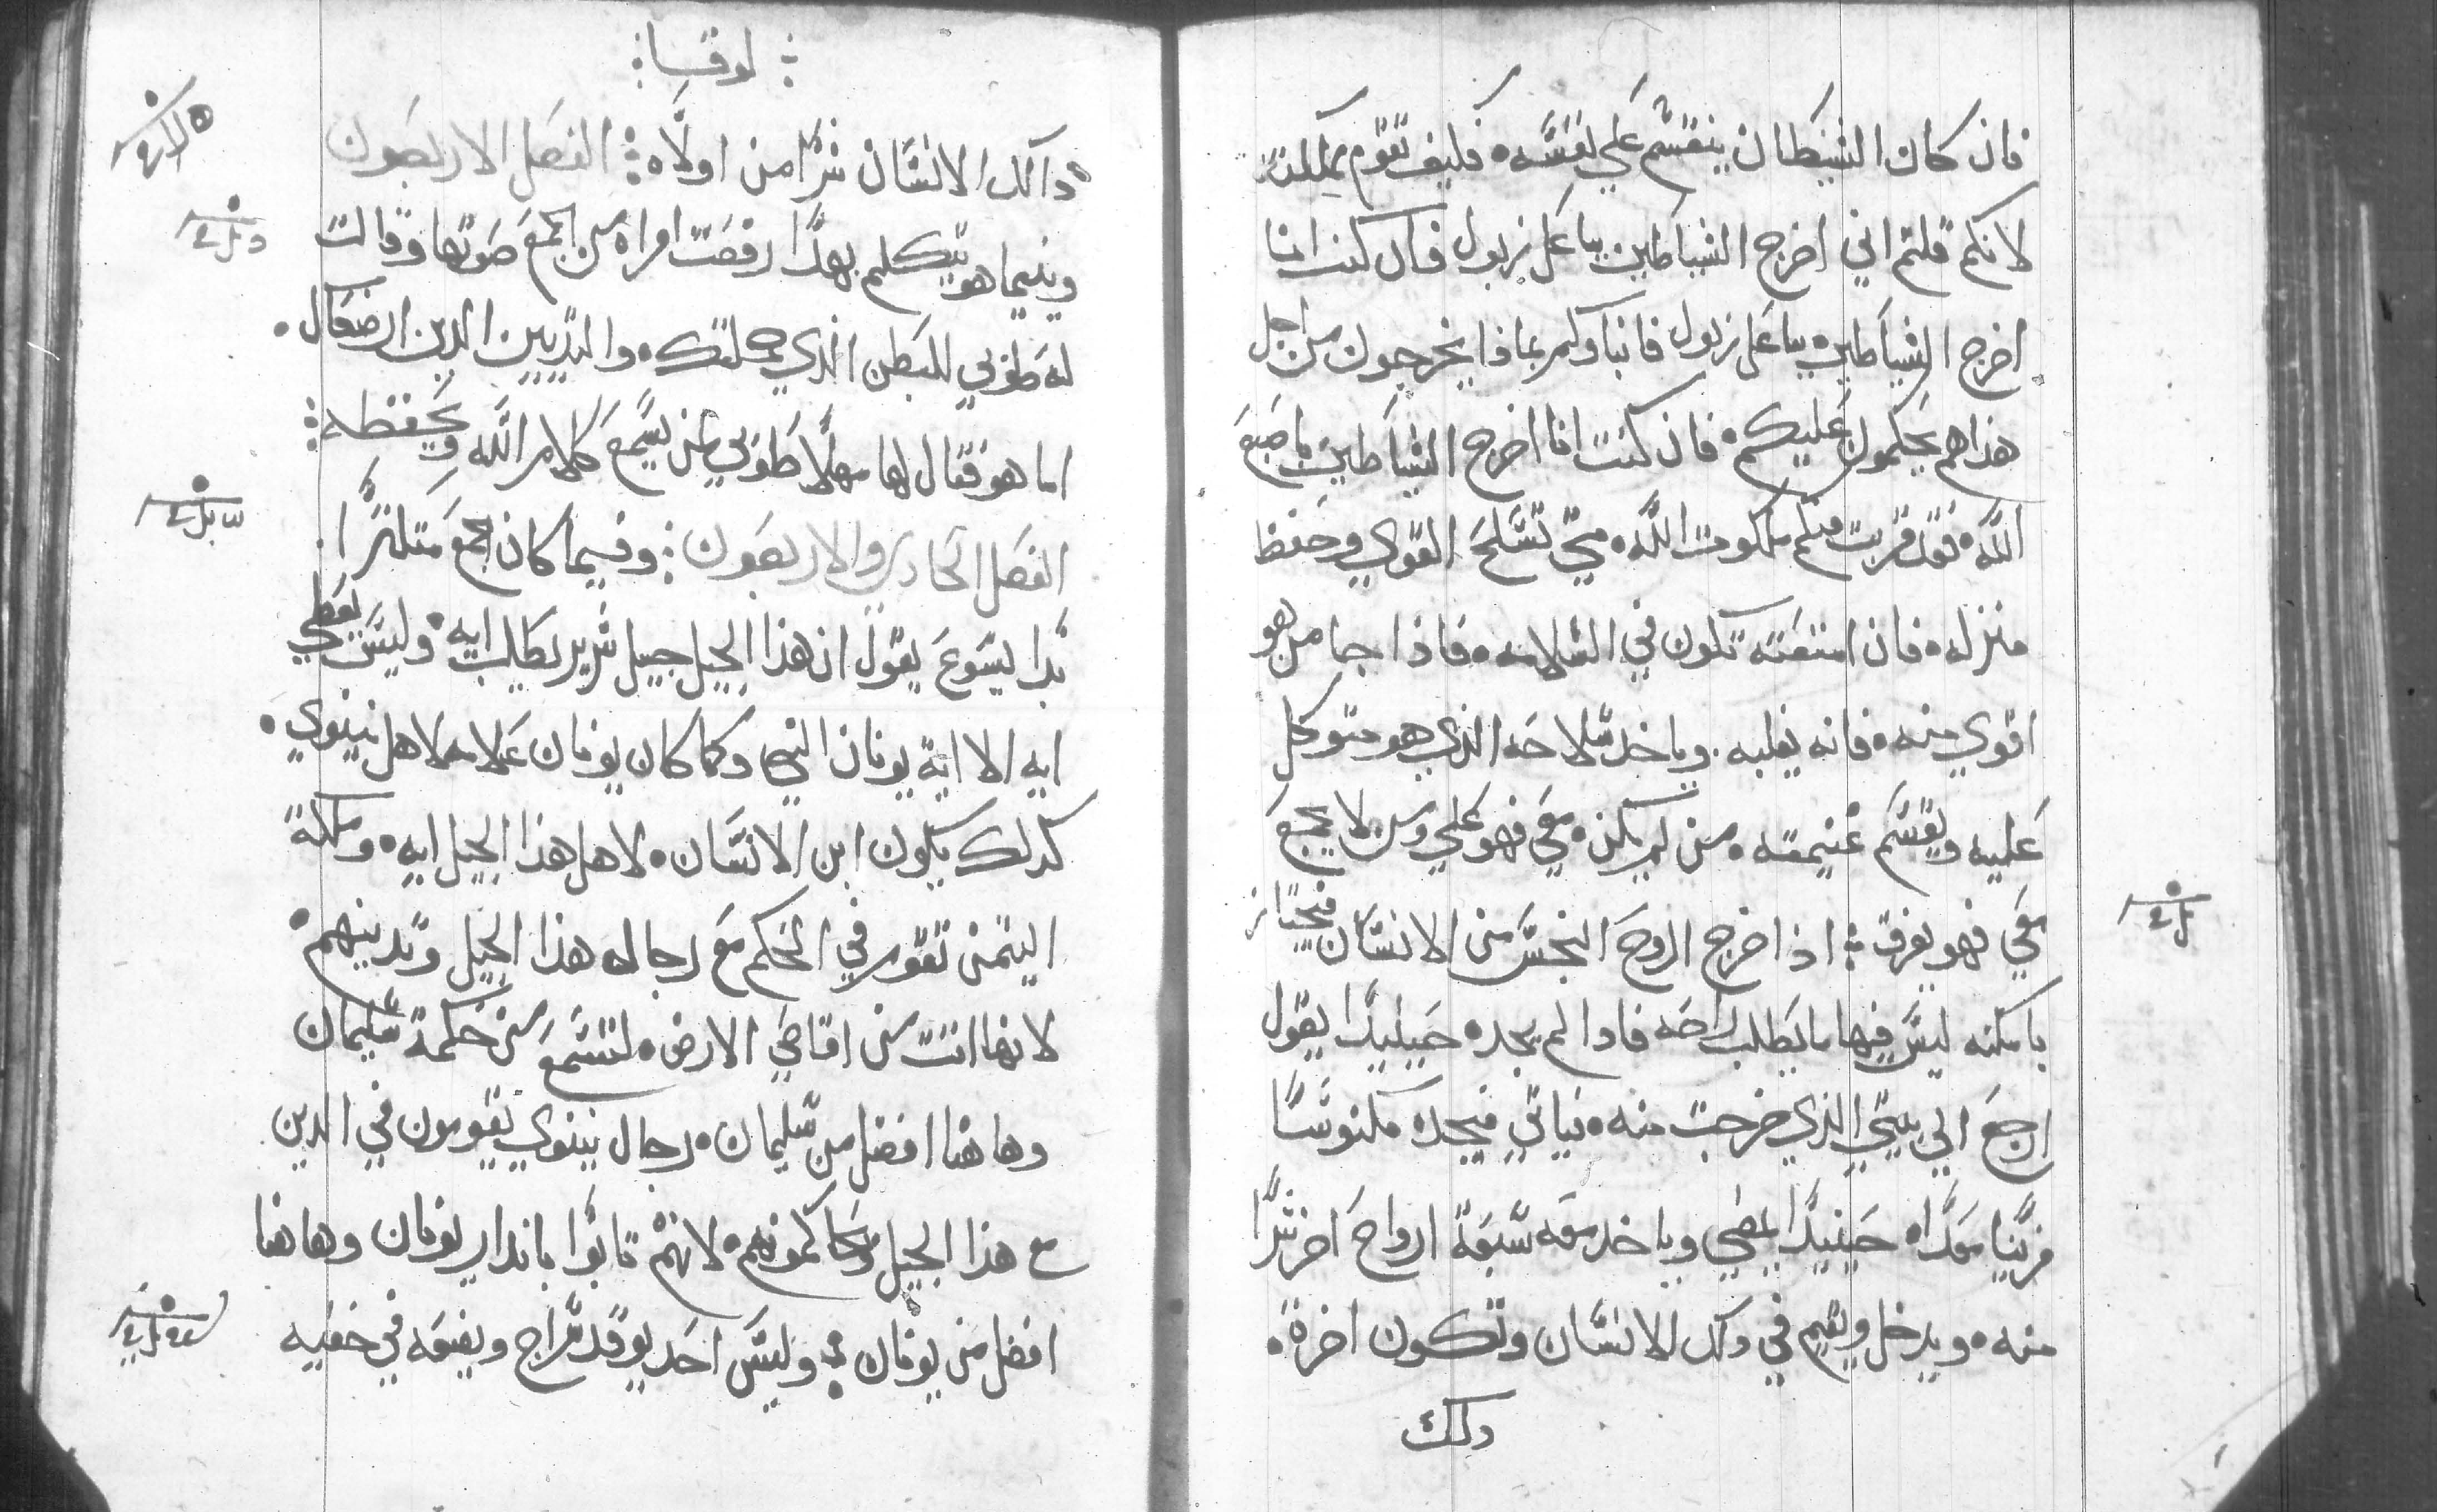 فان كان الشيطان ينقسم علي نفسه فكيف تقوم مملكته
لانكم قلتم اني اخرج الشياطين بباعل زبول فان كنت انا
اخرج الشياطين بباعل زبول فابناوكم بماذا يخرجون من اجل
هذا هم يحكمون عليكم فان كنت انا اخرج الشياطين باصبع
الله فقد قربت منكم ملكوت الله متي تسلح القوي وحفظ
منزله فان امتعته تكون في السلامه فاذا جا من هو
اقوي منه فانه يغلبه وياخد سلاحه الذي هو متوكل
عليه ويقسم غنيمته من لم يكن معي فهو علي ومن لا يجمع
معي فهو يفرق اذا خرج الروح النجس من الانسان فيجتاز
بامكنه ليس فيها ما يطلب راحه فادا لم يجد حينيدا يقول
ارجع الي بيتي الذي خرجت منه فياتي فيجده مكنوسا
مزينا معدا حينيدا يمضي وياخد معه سبعة ارواح اخر شرا
منه ويدخل ويقيم في دلك الانسان وتكون اخرة
دلك
لوقا
دالك الانسان شرا من اولاه الفصل الاربعون
وبينما هو يتكلم بهدا رفعت امراه من الجمع صوتها وقالت
له طوبي للبطن الذي حملتك والثديين الدين ارضعاك
اما هو فقال لها مهلا طوبي لمن يسمع كلام الله ويحفظه
الفصل الحادي والاربعون وفيما كان الجمع متكثرا
بدا يسوع يقول ان هذا الجيل جيل شرير يطلب ايه وليس يعطي
ايه الا اية يونان النبي وكما كان يونان علامه لاهل نينوي
كدلك يكون ابن الانسان لاهل هذا الجيل ايه وملكة
اليتمن تقوم في الحكم مع رجال هذا الجيل وتدينهم
لانها اتت من اقاصي الارض لتسمع من حكمة سليمان
وهاهنا افضل من سليمان رجال نينوي يقومون في الدين
مع هذا الجيل ويحاكمونهم لانهم تابوا باندار يونان وهاهنا
افضل من يونان وليس احد يوقد سراج ويضعه في خفيه